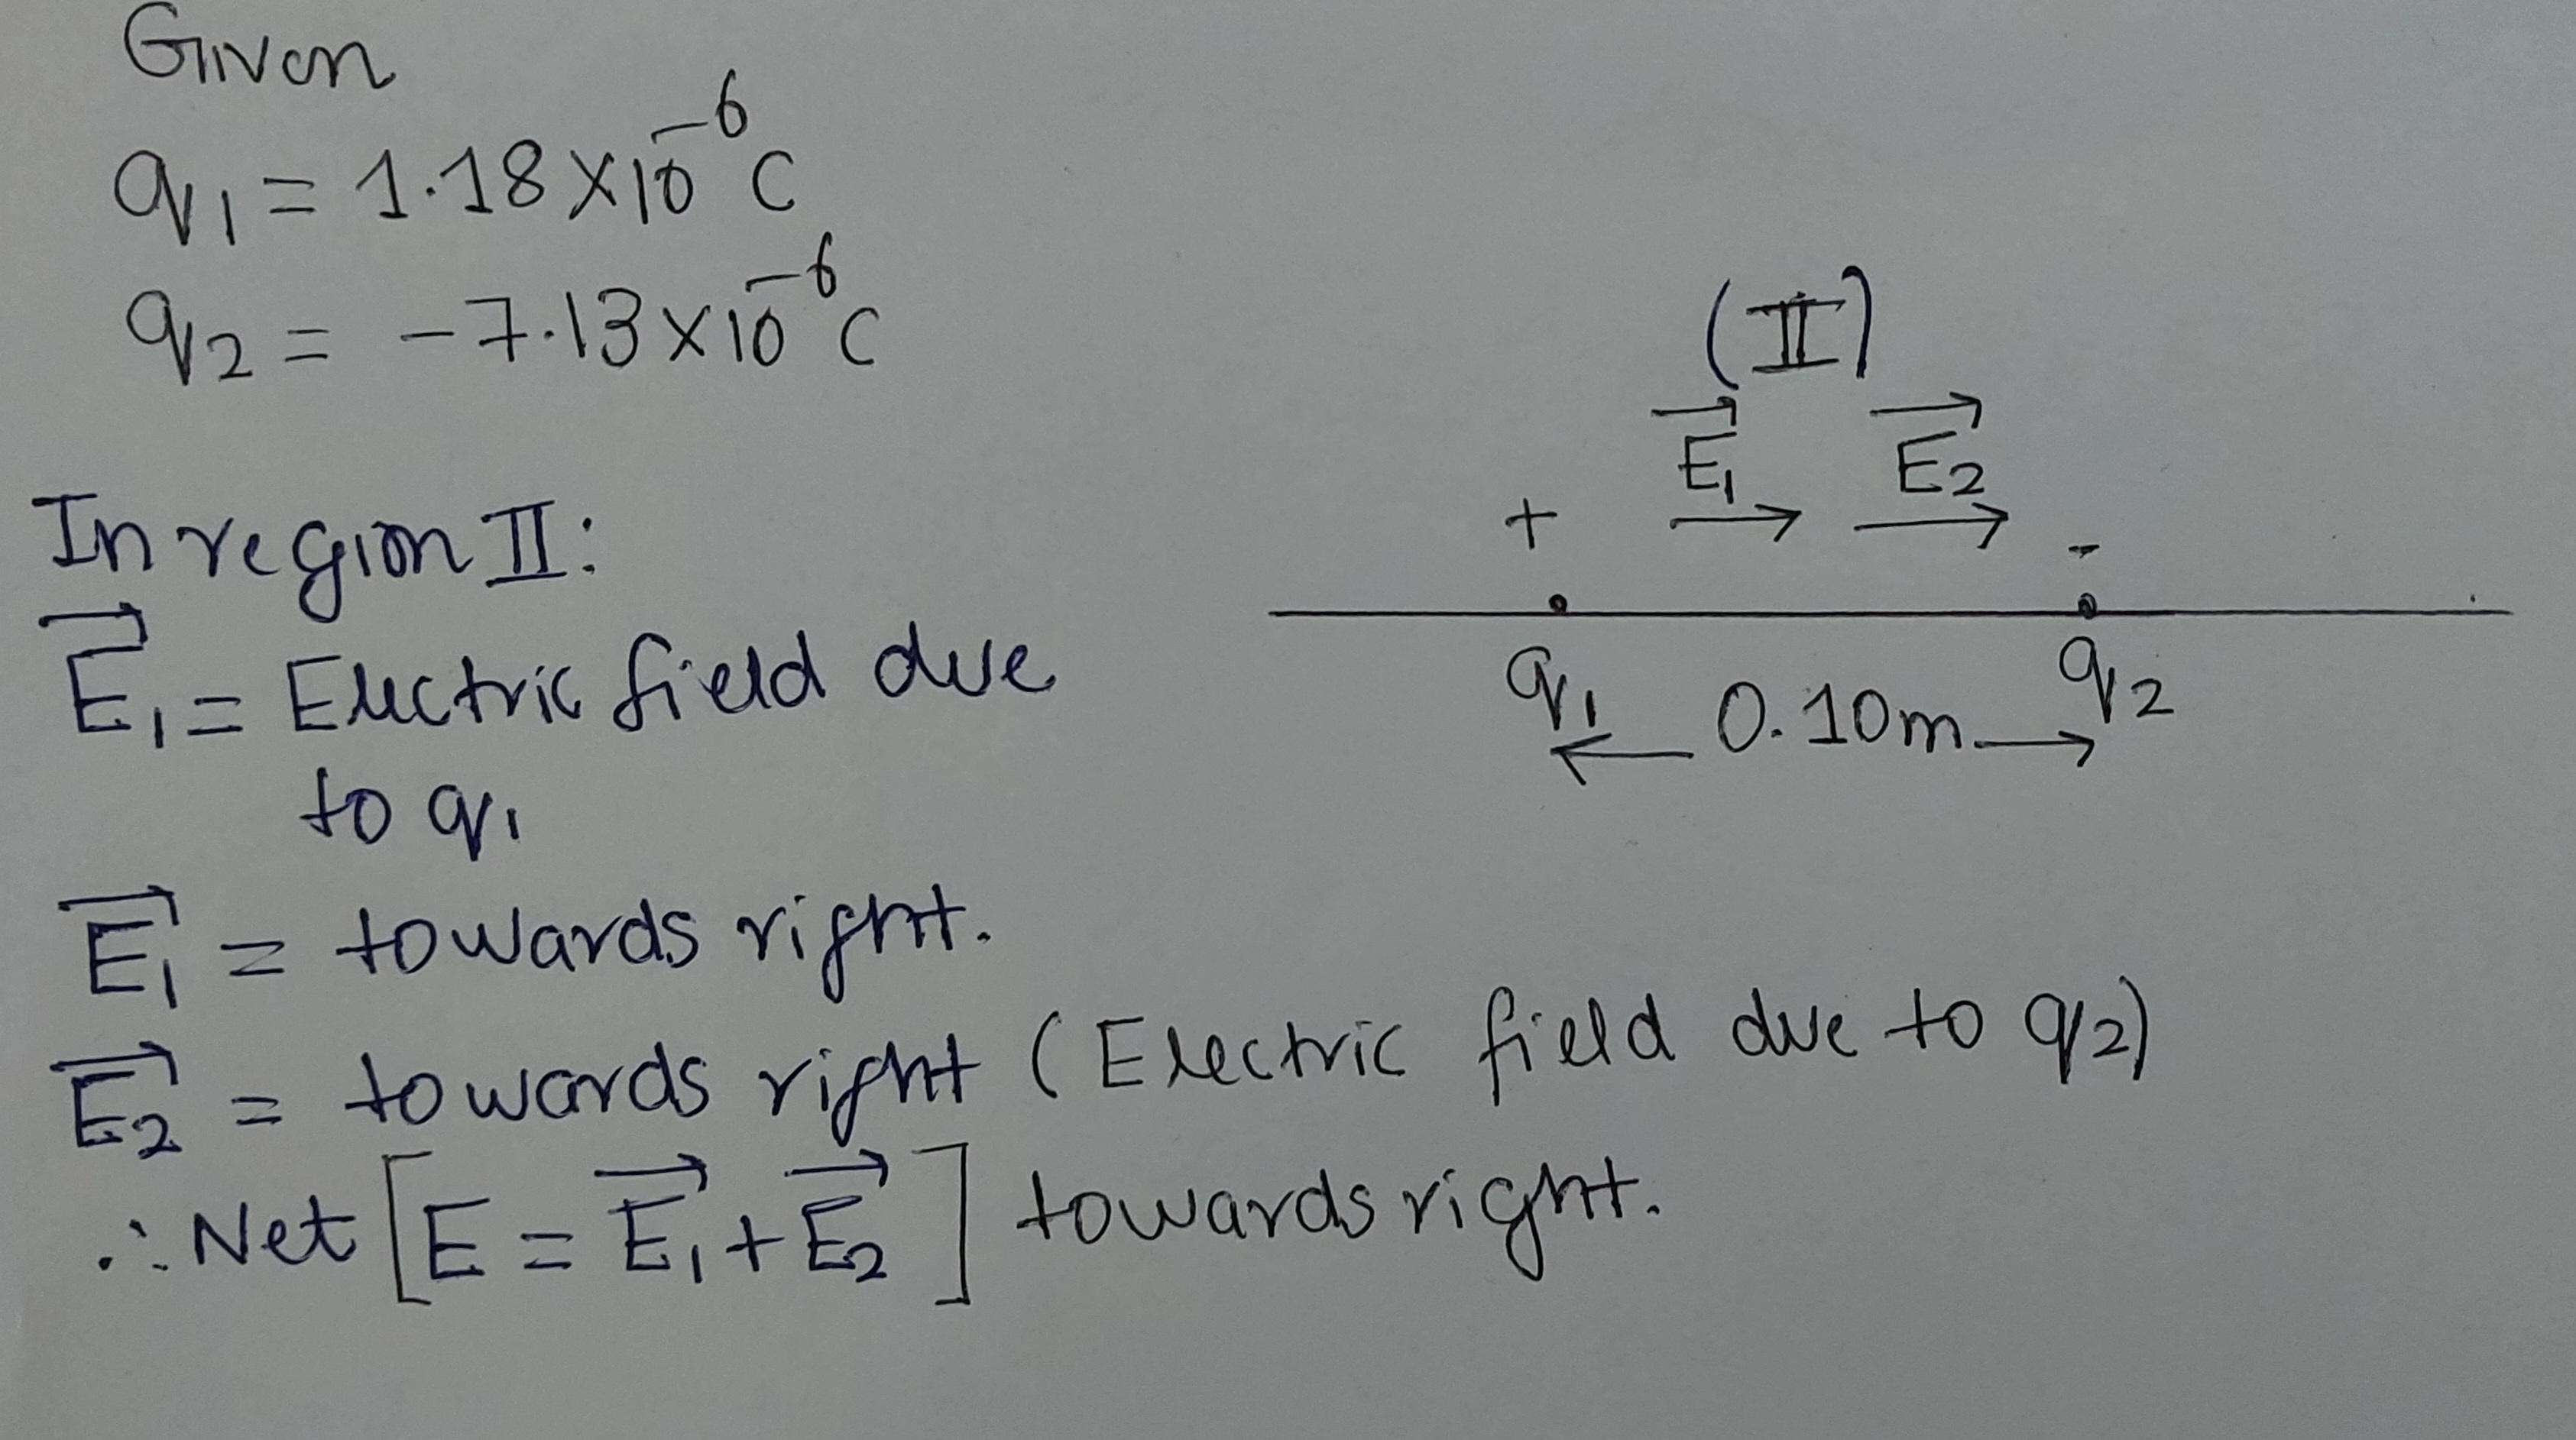 Given
q₁ = 1.18 × 10⁻⁶ C
q₂ = -7.13 × 10⁻⁶ C
(II)
E₁⃗ E₂⃗
→ →
+ -
q₁ q₂
← 0.10m →
In region II:
E₁⃗ = Electric field due
to q₁
E₁⃗ = towards right.
E₂⃗ = towards right (Electric field due to q₂)
∴ Net [E = E₁⃗ + E₂⃗] towards right.